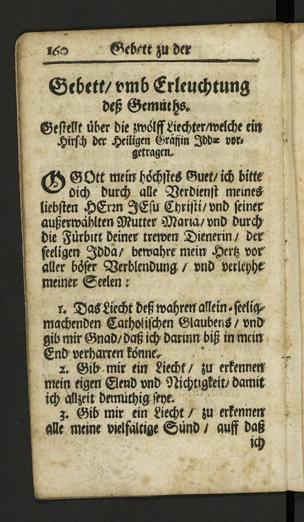 160 Gebett zu der
Gebett/ vmb Erleuchtung
deß Gemüths.
Gestellt über die zwölff Liechter/welche ein
Hirsch der Heiligen Gräffin Iddæ vor-
getragen.
O GOtt mein höchstes Guet/ ich bitte
dich durch alle Verdienst meines
liebsten HErrn JEsu Christi/ vnd seiner
außerwählten Mutter Maria/ vnd durch
die Fürbitt deiner trewen Dienerin/ der
seeligen Idda/ bewahre mein Hertz vor
aller böser Verblendung/ vnd verleyhe
meiner Seelen:
1. Das Liecht deß wahren allein-seelig-
machenden Catholischen Glaubens/ vnd
gib mir Gnad/ daß ich darinn biß in mein
End verharren könne.
2. Gib mir ein Liecht/ zu erkennen
mein eigen Elend vnd Nichtigkeit/ damit
ich allzeit demüthig seye.
3. Gib mir ein Liecht/ zu erkennen
alle meine vielfältige Sünd/ auff daß
ich